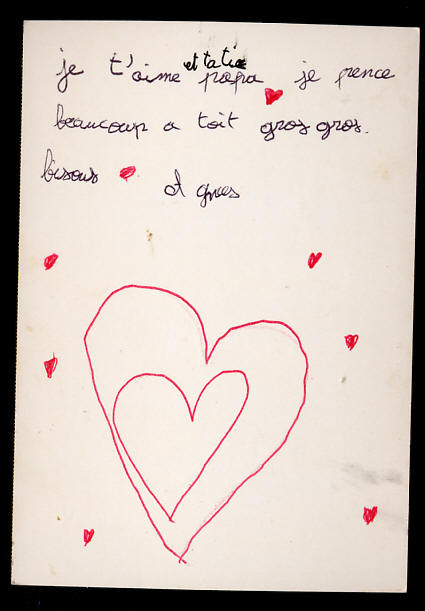 et tatie
je t'aime papa je pence
beaucoup a toit gros gros.
bisous